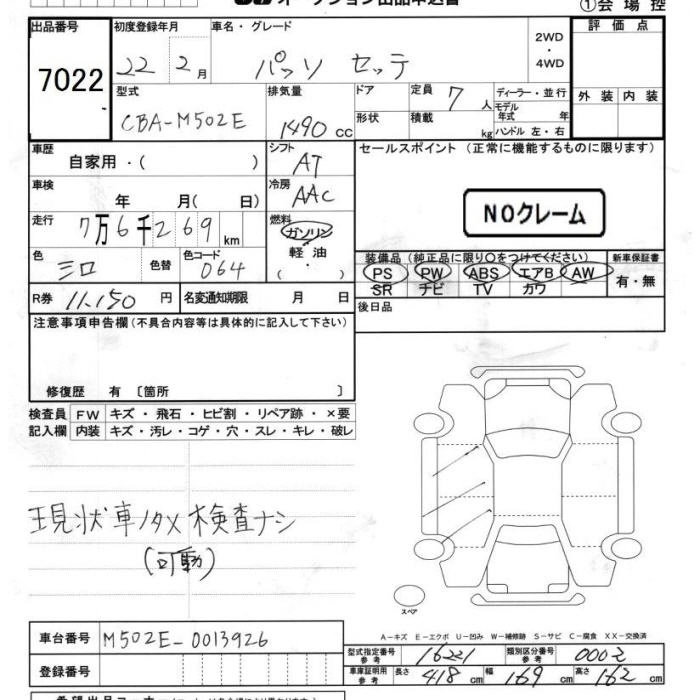 オークション出品申込書
①会場控
出品番号 7022
初度登録年月 22 2月
車名・グレード パッソ セッテ
2WD・4WD
評価点
外装 内装
型式 CBA-M502E
排気量 1490 cc
ドア 定員 7 人
形状 積載 kg
ディーラー・並行
モデル年式 年
ハンドル 左・右
車歴 自家用・( )
シフト AT
セールスポイント (正常に機能するものに限ります)
NOクレーム
車検 年 月( 日)
冷房 AAC
走行 7万6千269km
燃料 ガソリン・軽油
( ・ )
色 シロ 色替 色コード 064
装備品 (純正品に限り○をつけてください)
新車保証書
PS PW ABS エアB AW
SR ナビ TV カワ
有・無
R券 11,150 円
名変通知期限 月 日
後日品
注意事項申告欄 (不具合内容等は具体的に記入して下さい)
修復歴 有 〔箇所 〕
検査員記入欄
FW キズ・飛石・ヒビ割・リペア跡・×要
内装 キズ・汚レ・コゲ・穴・スレ・キレ・破レ
現状車ノタメ検査ナシ
(可動)
スペア
A-キズ E-エクボ U-凹み W-補修跡 S-サビ C-腐食 XX-交換済
車台番号 M502E-0013926
型式指定番号 参考 16221
類別区分番号 参考 0002
登録番号
車庫証明用 参考 長さ 418 cm 幅 169 cm 高さ 162 cm